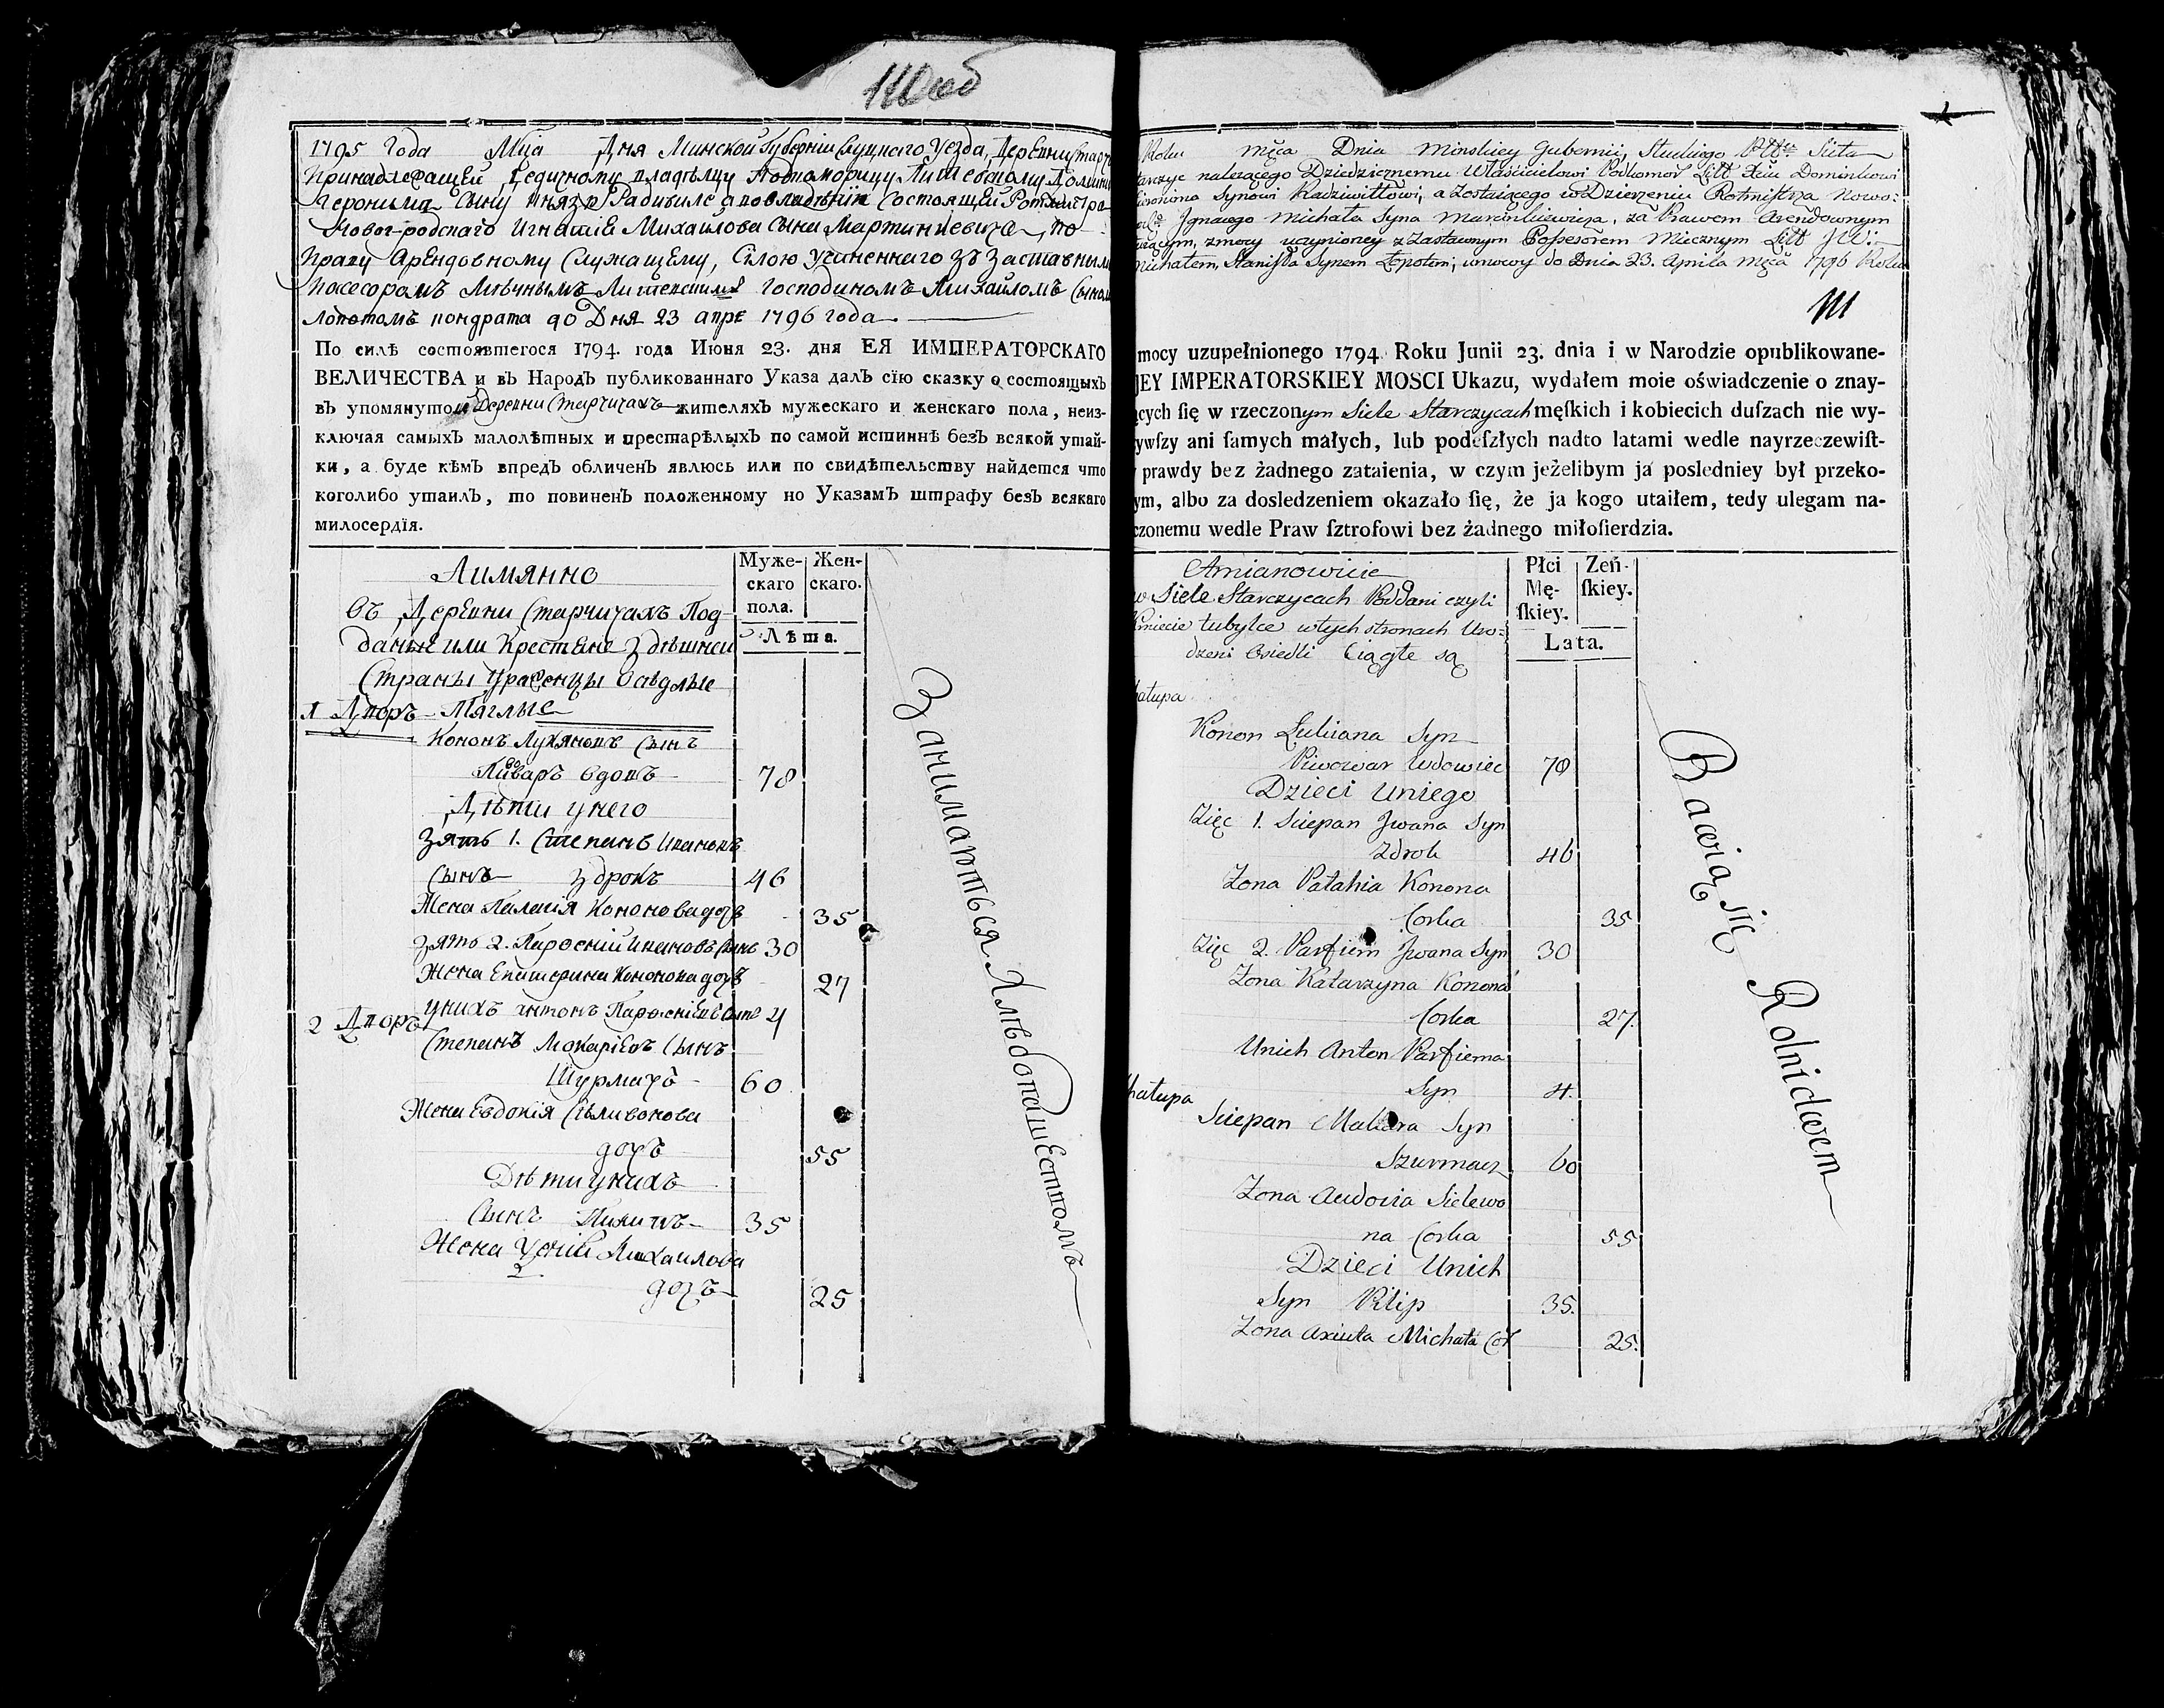 1795 Года Мца Дня Минской Губернїи Слуцкаго Уезда, Деревни Старчи
Принадлежащей Дедичному владѣлцу Подкоморицу Литевскому Домини
Геронима Сыну Князю Радивиле а во владѣнїи Состоящей Ротмистра
Новогродскаго Игнатїя Михайлова Сына Мартинкевича, по
Праву Арендовному Служащему, Силою Учиненнаго Зъ Заставным
Посесоромъ Мечнымъ Литевскимъ Господиномъ Михайломъ Сыном
Лопотомъ контракта до Дня 23 апре 1796 года
По силѣ состоявшегося 1794. года Июня 23. дня ЕЯ ИМПЕРАТОРСКАГО
ВЕЛИЧЕСТВА и въ Народъ публикованнаго Указа далъ сїю сказку о состоящихъ
въ упомянутой Деревни Старчичахъ жителяхъ мужескаго и женскаго пола, неиз-
ключая самыхъ малолѣтныхъ и престарѣлыхъ по самой истиннѣ безъ всякой утай-
ки, а буде кѣмъ впредь обличенъ явлюсь или по свидѣтельству найдется что
коголибо утаилъ, то повиненъ положенному но Указамъ штрафу безъ всякаго
милосердїя.
Аимянно
Муже-
скаго
пола.
Жен-
скаго.
Лѣта.
Въ Деревни Старчичахъ Под-
даные или Крестяне Здешней
Страны Уроженцы Оседлые
1 Дворъ Тяглые
Кононъ Лукяновъ Сынъ
Пивоваръ вдовъ 78
Дѣти унего
Зять 1. Степанъ Ивановъ
Сынъ Здрокъ 46
Жена Палагия Кононова дочъ 35
Зять 2. Парфений Ивановъ Сынъ 30
Жена Екатерина Кононова дочъ 27
унихъ Антонъ Парфенїевъ Сынъ 4
2 Дворъ
Степанъ Макариевъ Сынъ
Шурмачъ 60
Жена Евдокїя Селивонова
дочъ 55
Дѣти унихъ
Сынъ Пилипъ 35
Жена Михайлова
2
дочъ 25
Заниматься Хлѣбопашествомъ
Roku Mca Dnia Minskiey Gubernii, Sluckiego Pttu Sieła
tarczyc należącego Dziedzicznemu Właścicielowi Podkomor Litt Xciu Dominikowi
ieronima Synowi Radziwiłłowi, a zostaiącego w Dzierzeniu Rotmistrza Nowo:
Jgnacego Michała Syna Marcinkiewicza, za Prawem Arendownym
zmocy uczynioney z Zastawnym Possesorem Miecznym Litt JW:
Michałem, Stanisła Synem Łopotem, umowy do Dnia 23. Aprila Mca 1796 Roku
111
mocy uzupełnionego 1794 Roku Junii 23. dnia i w Narodzie opublikowane-
JEY IMPERATORSKIEY MOSCI Ukazu, wydałem moie oświadczenie o znay-
ących ſię w rzeczonym Siele Starczycach męſkich i kobiecich duſzach nie wy-
ywſzy ani ſamych małych, lub podeſzłych nadto latami wedle nayrzeczewiſt-
prawdy bez żadnego zataienia, w czym jeżelibym ja posledniey był przeko-
ym, albo za dosledzeniem okazało ſię, że ja kogo utaiłem, tedy ulegam na-
czonemu wedle Praw ſztrofowi bez żadnego miłoſierdzia.
Amianowicie
Płci
Mę-
ſkiey.
Zeń-
ſkiey.
Lata.
w Siele Starczycach Poddani czyli
Kmiecie tubylce wtych stronach Uro-
dzeni Osiedli Ciągłe są
hałupa
Konon Łukiana Syn
Piwowar Wdowiec 78
Dzieci Uniego
Zięć 1. Sciepan Jwana Syn
Zdrok 46
Zona Pałahia Konona
Corka 35
Zięć 2. Parfiem Jwana Syn 30
Zona Katarzyna Konona
Corka 27.
Unich Anton Parfiema
Syn 4.
hałupa
Sciepan Makara Syn
Szurmacz 60
Zona Audocia Sielewo
na Corka 55
Dzieci Unich
Syn Pilip 35.
Zona Axiuta Michała Cor 25.
Bawią się Rolnictwem